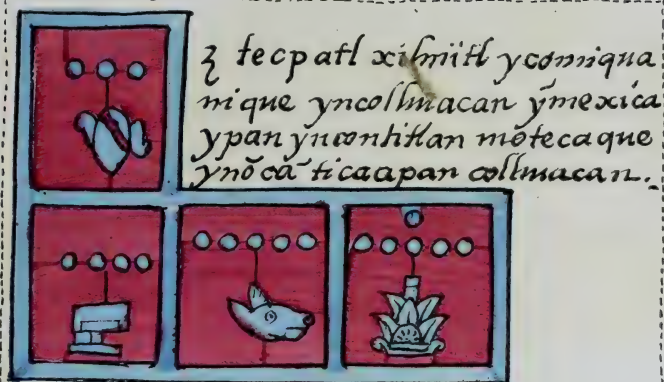 3 tecpatl xihuitl ycomiqua
nique yncollhuacan ȳmexica
ypan yncontitlan mōtecaque
ynōcā ticaapan collhuacan.